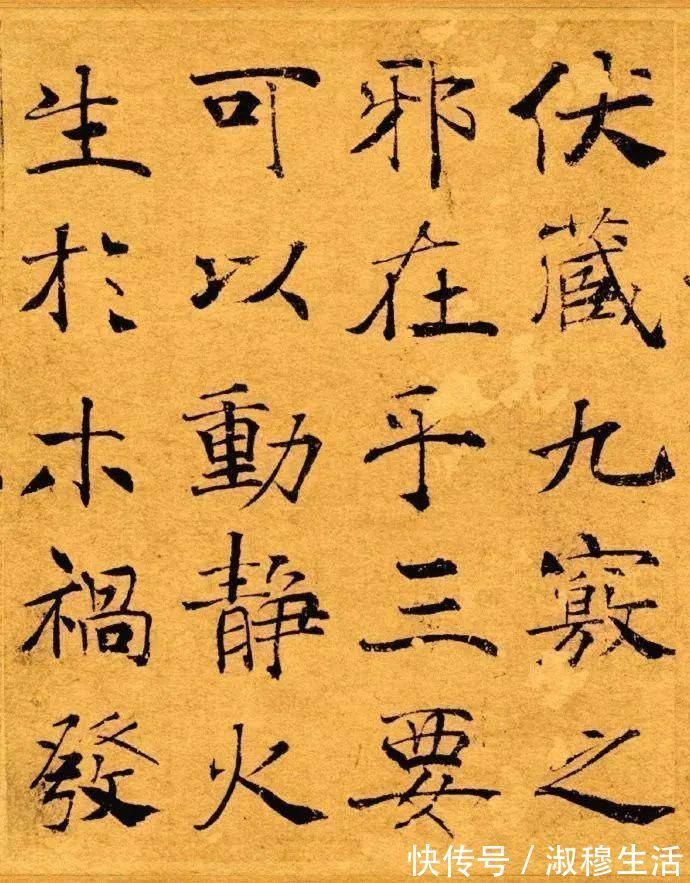 伏藏九竅之
邪在乎三要
可以動靜火
生於木禍發
快传号/淑穆生活